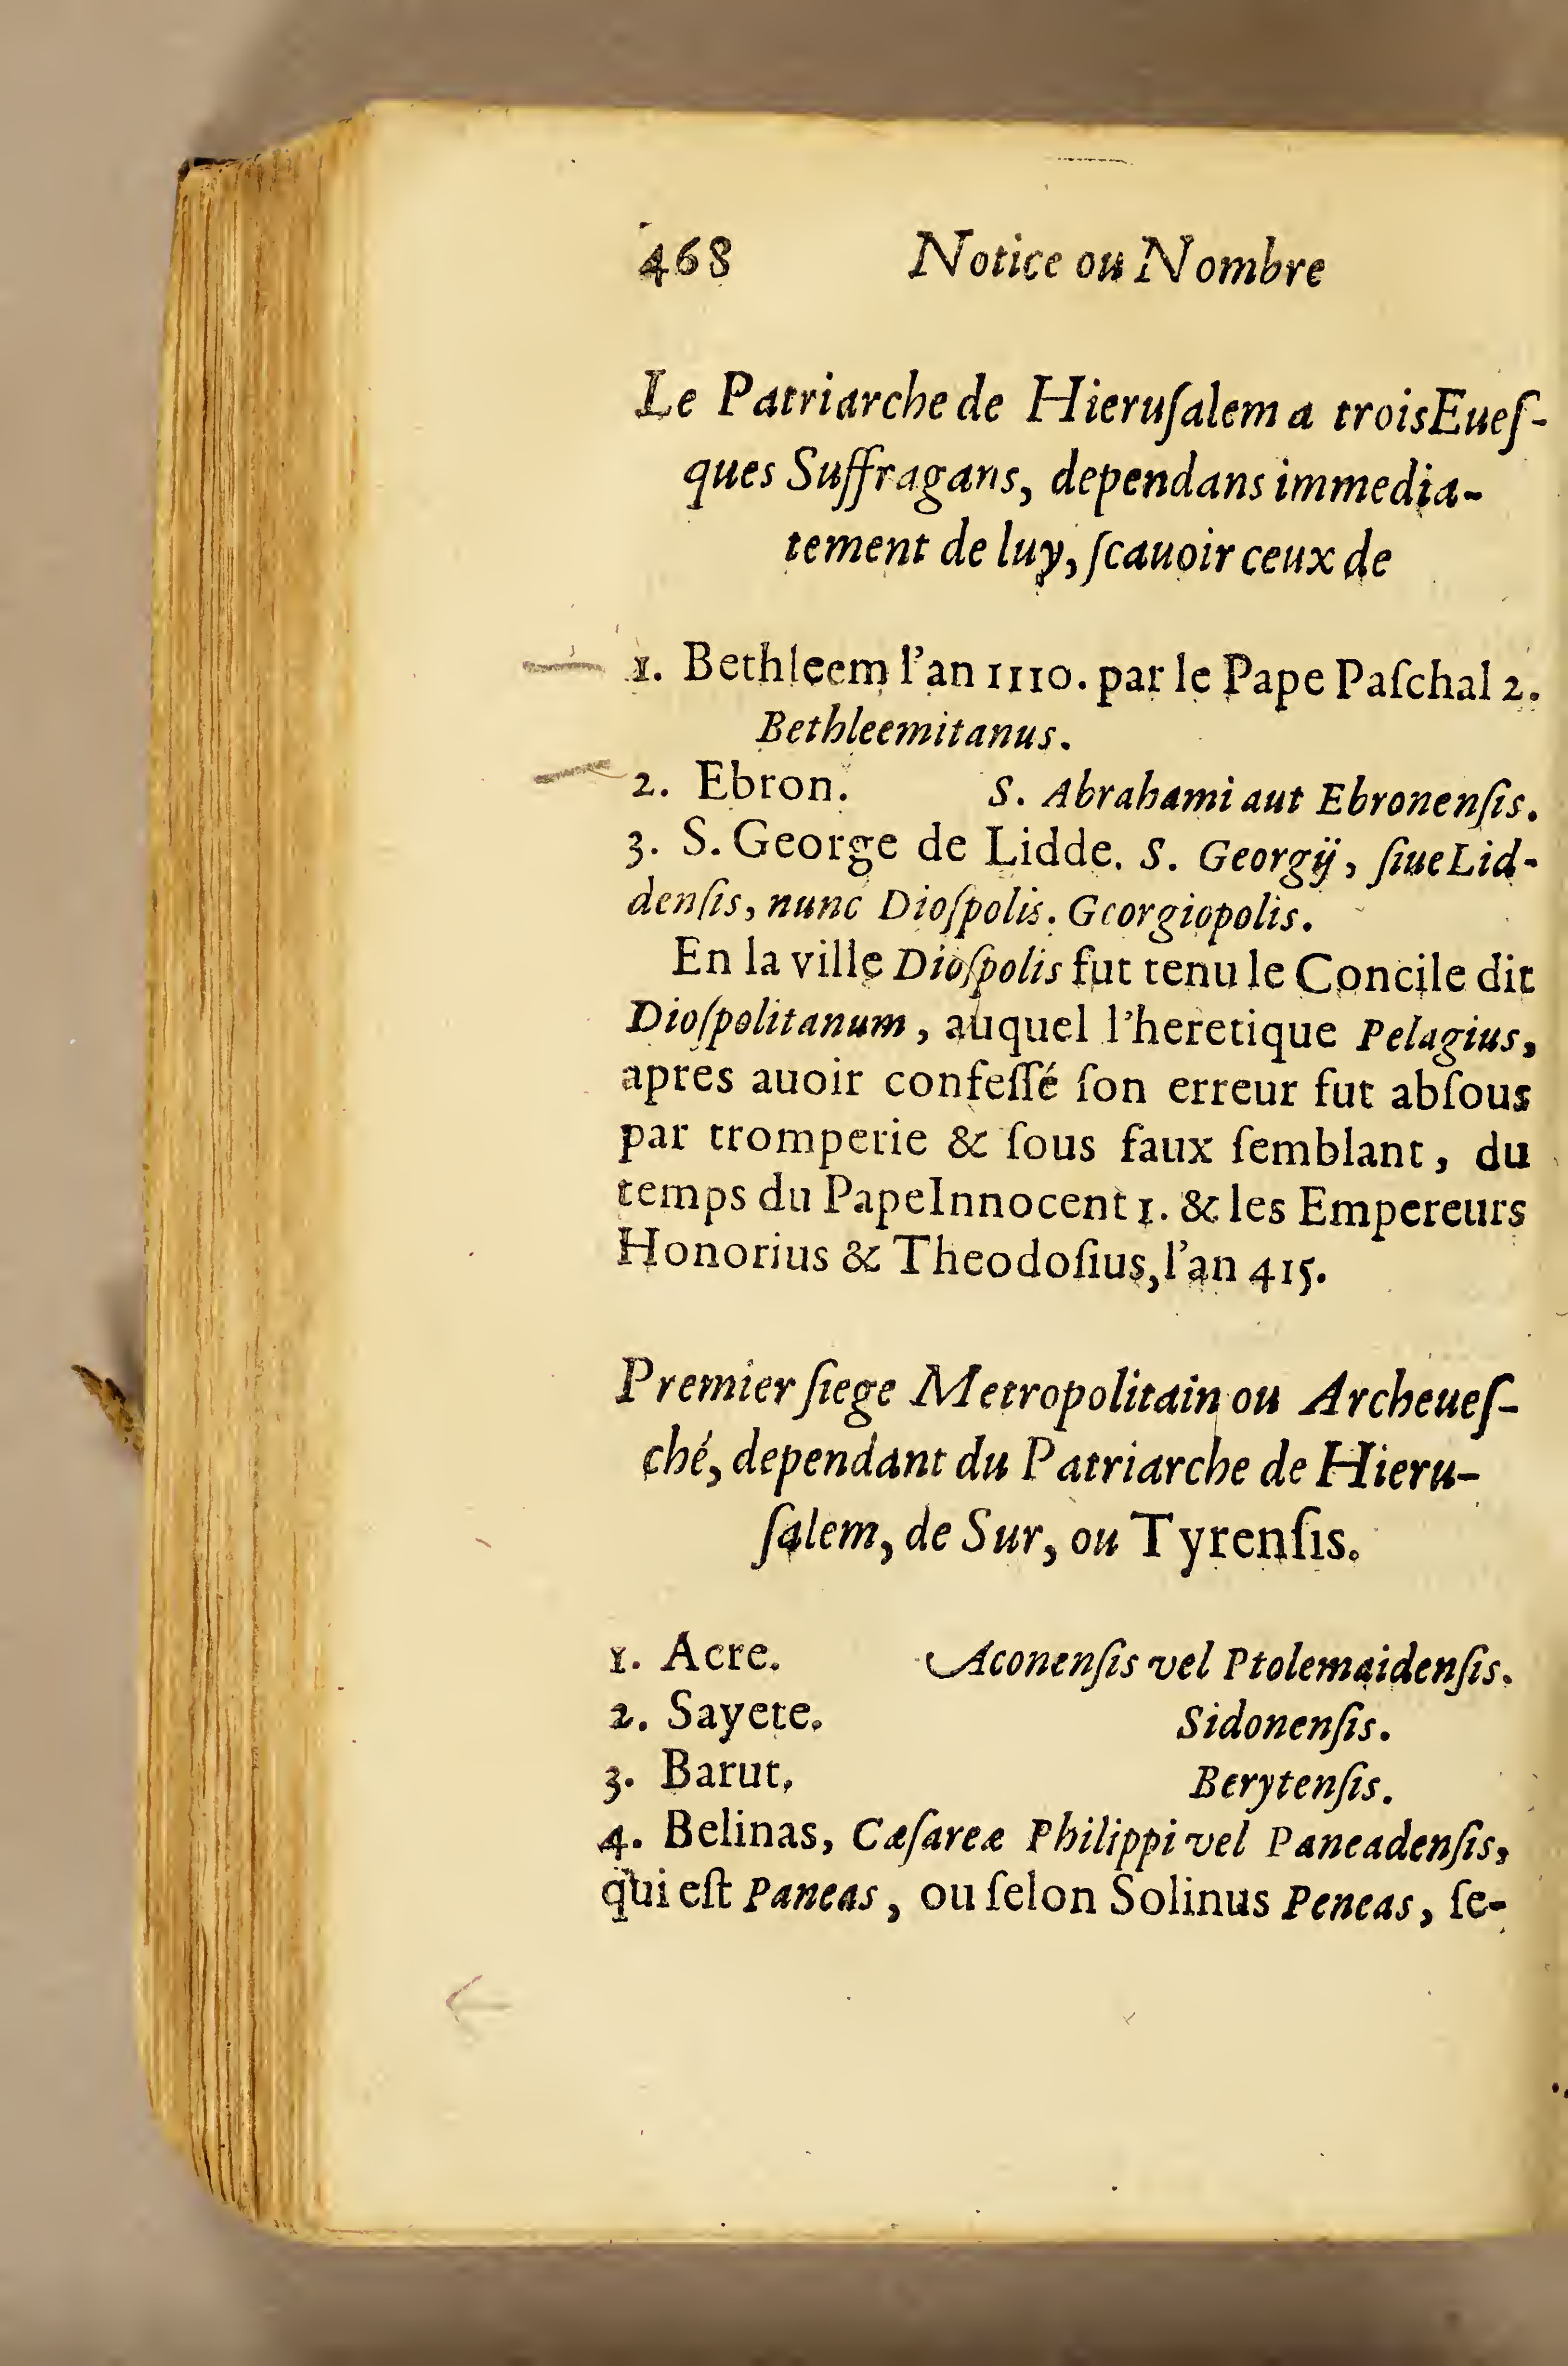 468 Notice ou Nombre
Le Patriarche de Hieruſalem a trois Eueſ-
ques Suffragans, dependans immedia-
tement de luy, ſcauoir ceux de
1. Bethleem l'an 1110. par le Pape Paſchal 2.
Bethleemitanus.
2. Ebron. S. Abrahami aut Ebronenſis.
3. S. George de Lidde. S. Georgij, ſiue Lid-
denſis, nunc Dioſpolis. Georgiopolis.
En la ville Dioſpolis fut tenu le Concile dit
Dioſpolitanum, auquel l'heretique Pelagius,
apres auoir confeſſé ſon erreur fut abſous
par tromperie & ſous faux ſemblant, du
temps du Pape Innocent 1. & les Empereurs
Honorius & Theodoſius, l'an 415.
Premier ſiege Metropolitain ou Archeueſ-
ché, dependant du Patriarche de Hieru-
ſalem, de Sur, ou Tyrenſis.
1. Acre. Aconenſis vel Ptolemaidenſis.
2. Sayete. Sidonenſis.
3. Barut. Berytenſis.
4. Belinas, Cæſareæ Philippi vel Paneadenſis,
qui eſt Paneas, ou ſelon Solinus Peneas, ſe-